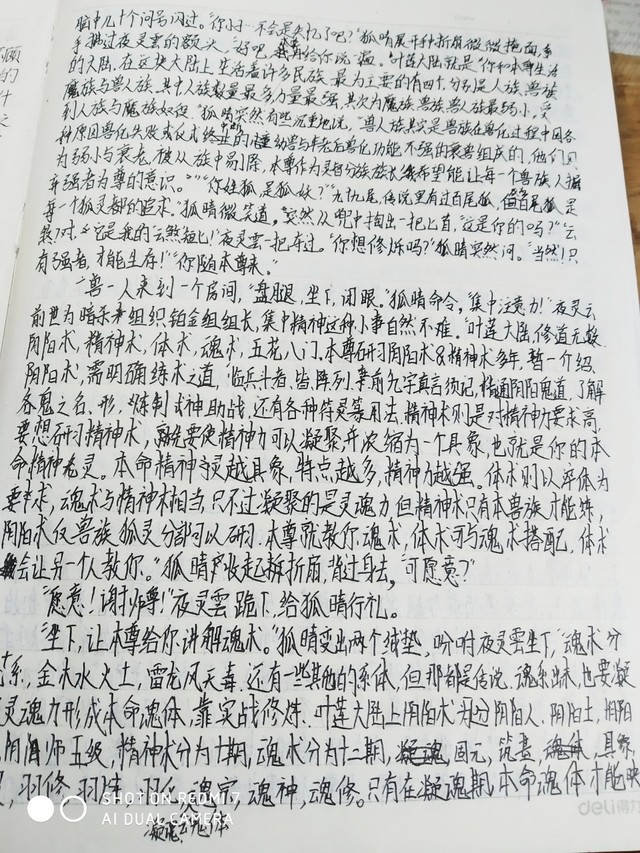 脑中几十个问号闪过。"你小一不会是失忆了吧?"狐晴展开种折扇微微掩面,
手抛过夜灵云的额头。"好吧,本尊给你说一遍。"叶莲大陆就是你和本尊生活
的大陆,在这块大陆上生活着许多民族,最为主要的有四个,分别是人族、兽族
魔族与兽人族。其中人族数量最多力量最强,其次为魔族、兽族,兽人族最弱小,受
到人族与魔族奴役。"狐晴突然有些沉重地说,"兽人族其实是兽族在兽化过程中因各
种原因兽化失败或仪式终止的
为弱小与衰老,被从族中剔除,本尊作为灵狐分族族长希望能让每一个兽族人拥
有强者为尊的意识。""你姓狐,是狐妖?""九十九尾,传说里有过百尾狐,但百尾狐是
每一个狐灵都的追求。"狐晴微笑道。突然从兜中掏出一把上首,"这是你的吗?""云
煞?对,它是我的云煞短匕!"夜灵云一把夺过。"你想修炼吗?"狐晴突然问。"当然!只
有强者,才能生存!""你随本尊来。"
一兽一人来到一个房间,"盘腿,坐下,闭眼。"狐晴命令,"集中注意力!"夜灵云
前世为暗杀组织铂金组组长,集中精神这种小事自然不难。"叶莲大陆,修道无数
阴阳术,精神术,体术,魂术,五花八门。本尊研习阴阳术&精神术多年,暂一介绍
阴阳术,需明确练术之道,临兵斗者、皆阵列、前九字真言须记,精通阴阳鬼道,了解
各鬼之名、形,炼制式神助战,还有各种符灵等用法。精神术则是对精神力要求高,
要想研习精神术,就先要使精神力可以凝聚并浓缩为一个具象,也就是你的本
命精神元灵。本命精神元灵越具象,特点越多,精神力越强。体术则以本体为
要求,魂术与精神术相当,只不过凝聚的是灵魂力,但精神术只有本兽族才能练,
阴阳术仅兽族狐灵分部可以研习。本尊就教你魂术,体术可与魂术搭配,体术
会让另一个人教你。"狐晴收起折扇,背过身去,"可愿意?"
"愿意!谢师尊!"夜灵云跪下,给狐晴行礼。
"坐下,让本尊给你讲解魂术。"狐晴变出两个绒垫,吩咐夜灵云坐下,"魂术分
十系,金木水火土,雷龙风天毒,还有一些其他的系体,但那都是传说。魂系出术,也要凝
灵魂力形成本命魂体,靠实战修炼。叶莲大陆上阴阳术分阴阳人、阴阳士,阴阳
阴阳师五级,精神术分为十期,魂术分为十二期,固元,筑基,具象
羽修,羽
魂宗,魂神,魂修。只有在凝魂期,本命魂体才能
凝魂
SHOT ON REDMI 7
AI DUAL CAMERA
deli得力